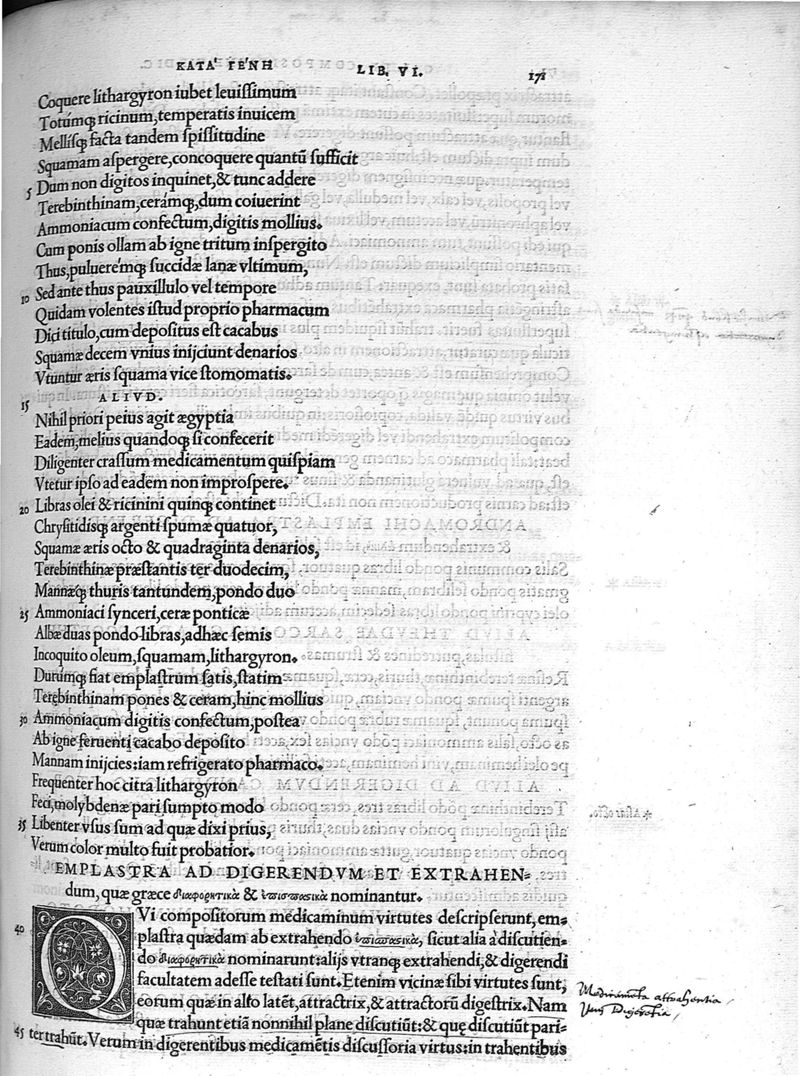 ΚΑΤΑ' ΓΕ'ΝΗ LIB. VI. 171
Coquere lithargyron iubet leuissimum
Totúmq́; ricinum, temperatis inuicem
Mellisq́; facta tandem spissitudine
Squamam aspergere, concoquere quantũ sufficit
5 Dum non digitos inquinet, & tunc addere
Terebinthinam, cerámq́;, dum coiuerint
Ammoniacum confectum, digitis mollius.
Cum ponis ollam ab igne tritum inspergito
Thus, puluerémq́; succidæ lanæ vltimum,
10 Sed ante thus pauxillulo vel tempore
Quidam volentes istud proprio pharmacum
Dici titulo, cum depositus est cacabus
Squamæ decem vnius inijciunt denarios
Vtuntur æris squama vice stomomatis.
15 ALIVD.
Nihil priori peius agit ægyptia
Eadem, melius quandoq́; si confecerit
Diligenter crassum medicamentum quispiam
Vtetur ipso ad eadem non improspere.
20 Libras olei & ricinini quinq́; continet
Chrysitidisq́; argenti spumæ quatuor,
Squamæ æris octo & quadraginta denarios,
Terebinthinæ præstantis ter duodecim,
Mannæq́; thuris tantundem, pondo duo
25 Ammoniaci synceri, ceræ ponticæ
Albæ duas pondo libras, adhæc semis
Incoquito oleum, squamam, lithargyron.
Durúmq́; fiat emplastrum satis, statim
Terebinthinam pones & ceram, hinc mollius
30 Ammoniacum digitis confectum, postea
Ab igne feruenti cacabo deposito
Mannam inijcies: iam refrigerato pharmaco.
Frequenter hoc citra lithargyron
Feci, molybdenæ pari sumpto modo
35 Libenter vsus sum ad quæ dixi prius,
Verum color multo fuit probatior.
EMPLASTRA AD DIGERENDVM ET EXTRAHEN-
dum, quæ græce διαφορητικὰ & ἐπισπαστικὰ nominantur.
40 QVi compositorum medicaminum virtutes descripserunt, em-
plastra quædam ab extrahendo ἐπισπαστικὰ, sicut alia à discutien-
do διαφορητικὰ nominarunt: alijs vtranq́; extrahendi, & digerendi
facultatem adesse testati sunt. Etenim vicinæ sibi virtutes sunt,
eorum quæ in alto latẽt, attractrix, & attractorũ digestrix. Nam
quæ trahunt etiã nonnihil plane discutiũt: & quę discutiũt pari-
45 ter trahũt. Verum in digerentibus medicamẽtis discussoria virtus: in trahentibus
Medicamẽta attrahentia